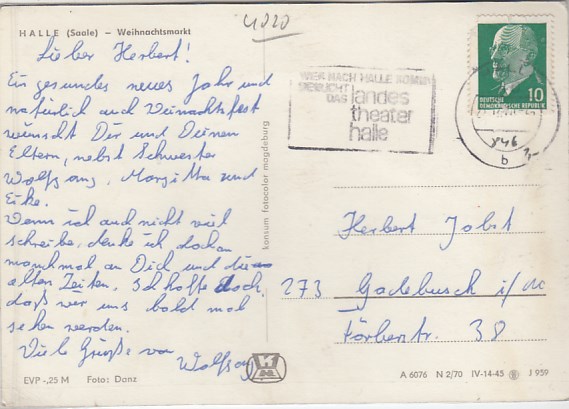 4020
HALLE (Saale) – Weihnachtsmarkt
Lieber Herbert!
Ein gesundes neues Jahr und
natürlich auch Weihnachtsfest
wünscht Dir und Deinen
Eltern, nebst Schwester
Wolfgang, Margitta und
Eike.
Wenn ich auch nicht viel
schreibe, denke ich
manchmal an Dich und die
alten Zeiten. Ich hoffe doch,
daß wir uns bald mal
sehen werden.
Viele Grüße von
Wolfgang
EVP -,25 M Foto: Danz
konsum fotocolor magdeburg
WER NACH HALLE KOMMT
BESUCHT
DAS landes
theater
halle
10
DEUTSCHE
DEMOKRATISCHE REPUBLIK
b
Herbert Jobst
273 Gadebusch i/M
Färberstr. 38
A 6076 N 2/70 IV-14-45 J 959